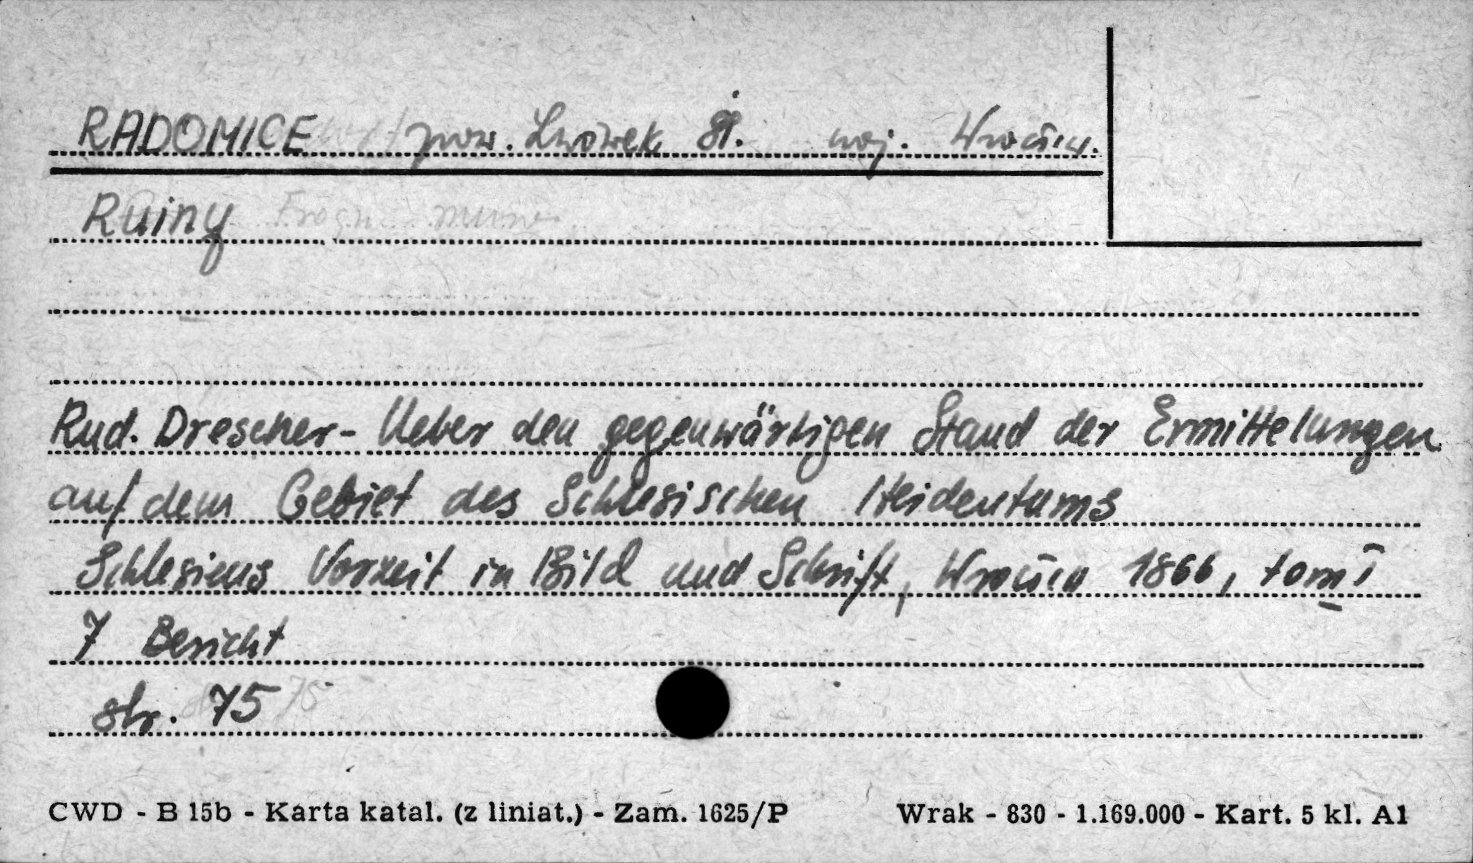 RADOMICE pow. Lwówek Śl. woj. Wrocław.
Ruiny Fragm. murów
Rud. Drescher - Ueber den gegenwärtigen Stand der Ermittelungen
auf dem Gebiet des Schlesischen Heidentums
Schlesiens Vorzeit in Bild und Schrift, Wrocław 1866, tom I
7 Bericht
str. 75
CWD - B 15b - Karta katal. (z liniat.) - Zam. 1625/P Wrak - 830 - 1.169.000 - Kart. 5 kl. A1